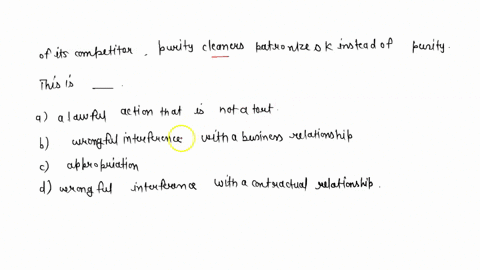 of its competitor, purity cleaners patronize sk instead of purity.
This is ___.
a) a lawful action that is not a tort.
b) wrongful interference with a business relationship
c) appropriation
d) wrongful interference with a contractual relationship.